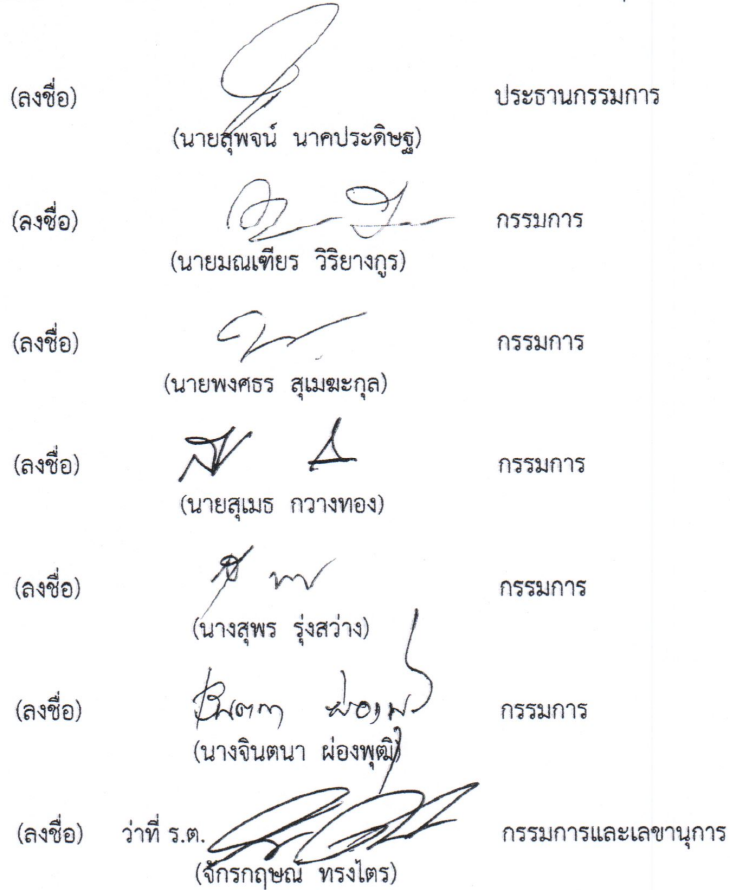 (ลงชื่อ) ประธานกรรมการ
(นายสุพจน์ นาคประดิษฐ)
(ลงชื่อ) กรรมการ
(นายมณเฑียร วิริยางกูร)
(ลงชื่อ) กรรมการ
(นายพงศธร สุเมฆะกุล)
(ลงชื่อ) กรรมการ
(นายสุเมธ กวางทอง)
(ลงชื่อ) กรรมการ
(นางสุพร รุ่งสว่าง)
(ลงชื่อ) กรรมการ
(นางจินตนา ผ่องพุฒิ)
(ลงชื่อ) ว่าที่ ร.ต. กรรมการและเลขานุการ
(จักรกฤษณ ทรงไตร)